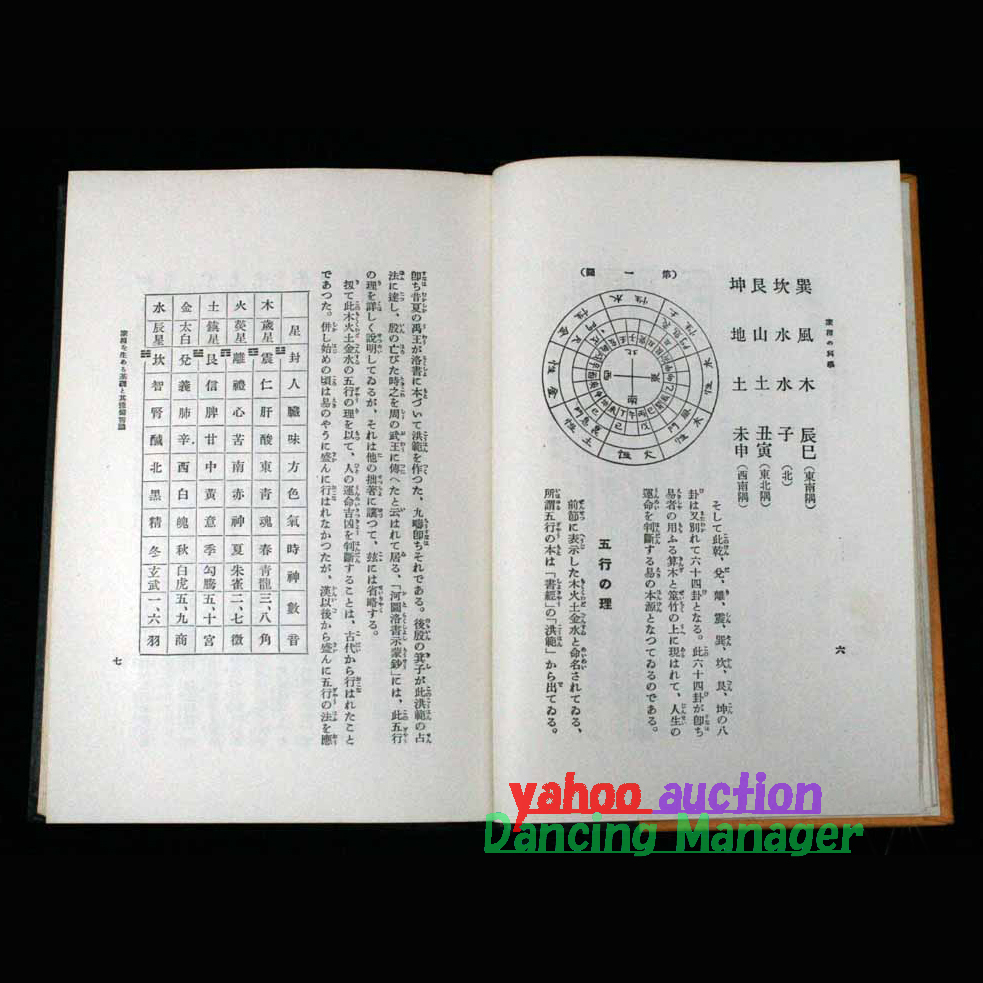 巽 風 木 辰巳（東南隅）
坎 水 水 子（北）
艮 山 土 丑寅（東北隅）
坤 地 土 未申（西南隅）
（第一圖）
北
東
南
そして此乾、兌、離、震、巽、坎、艮、坤の八
卦は又別れて六十四卦となる。此六十四卦が卽ち
易者の用ふる算木と筮竹の上に現はれて、人生の
運命を判斷する易の本源となつてゐるのである。
五行の理
前節に表示した木火土金水と命名されてゐる、
所謂五行の本は「書經」の「洪範」から出てゐる。
六
卽ち昔夏の禹王が洛書に本づいて洪範を作つた、九疇卽ちそれである。後殷の箕子が此洪範の占
法に達し、殷の亡びた時之を周の武王に傳へたと云はれて居る、「河圖洛書示蒙鈔」には、此五行
の理を詳しく說明してゐるが、それは他の拙著に讓つて、玆には省略する。
扨て此木火土金水の五行の理を以て、人の運命吉凶を判斷することは、古代から行はれたこと
であつた。併し始めの頃は易のやうに盛んに行はれなかつたが、漢以後から盛んに五行の法を應
星 卦 人 臟 味 方 色 氣 時 神 數 音
木 歲星 震 仁 肝 酸 東 靑 魂 春 靑龍 三、八 角
火 熒星 離 禮 心 苦 南 赤 神 夏 朱雀 二、七 徵
土 鎭星 艮 信 脾 甘 中 黃 意 季 勾騰 五、十 宮
金 太白 兌 義 肺 辛 西 白 魄 秋 白虎 五、九 商
水 辰星 坎 智 腎 鹹 北 黑 精 冬 玄武 一、六 羽
七
yahoo auction
Dancing Manager